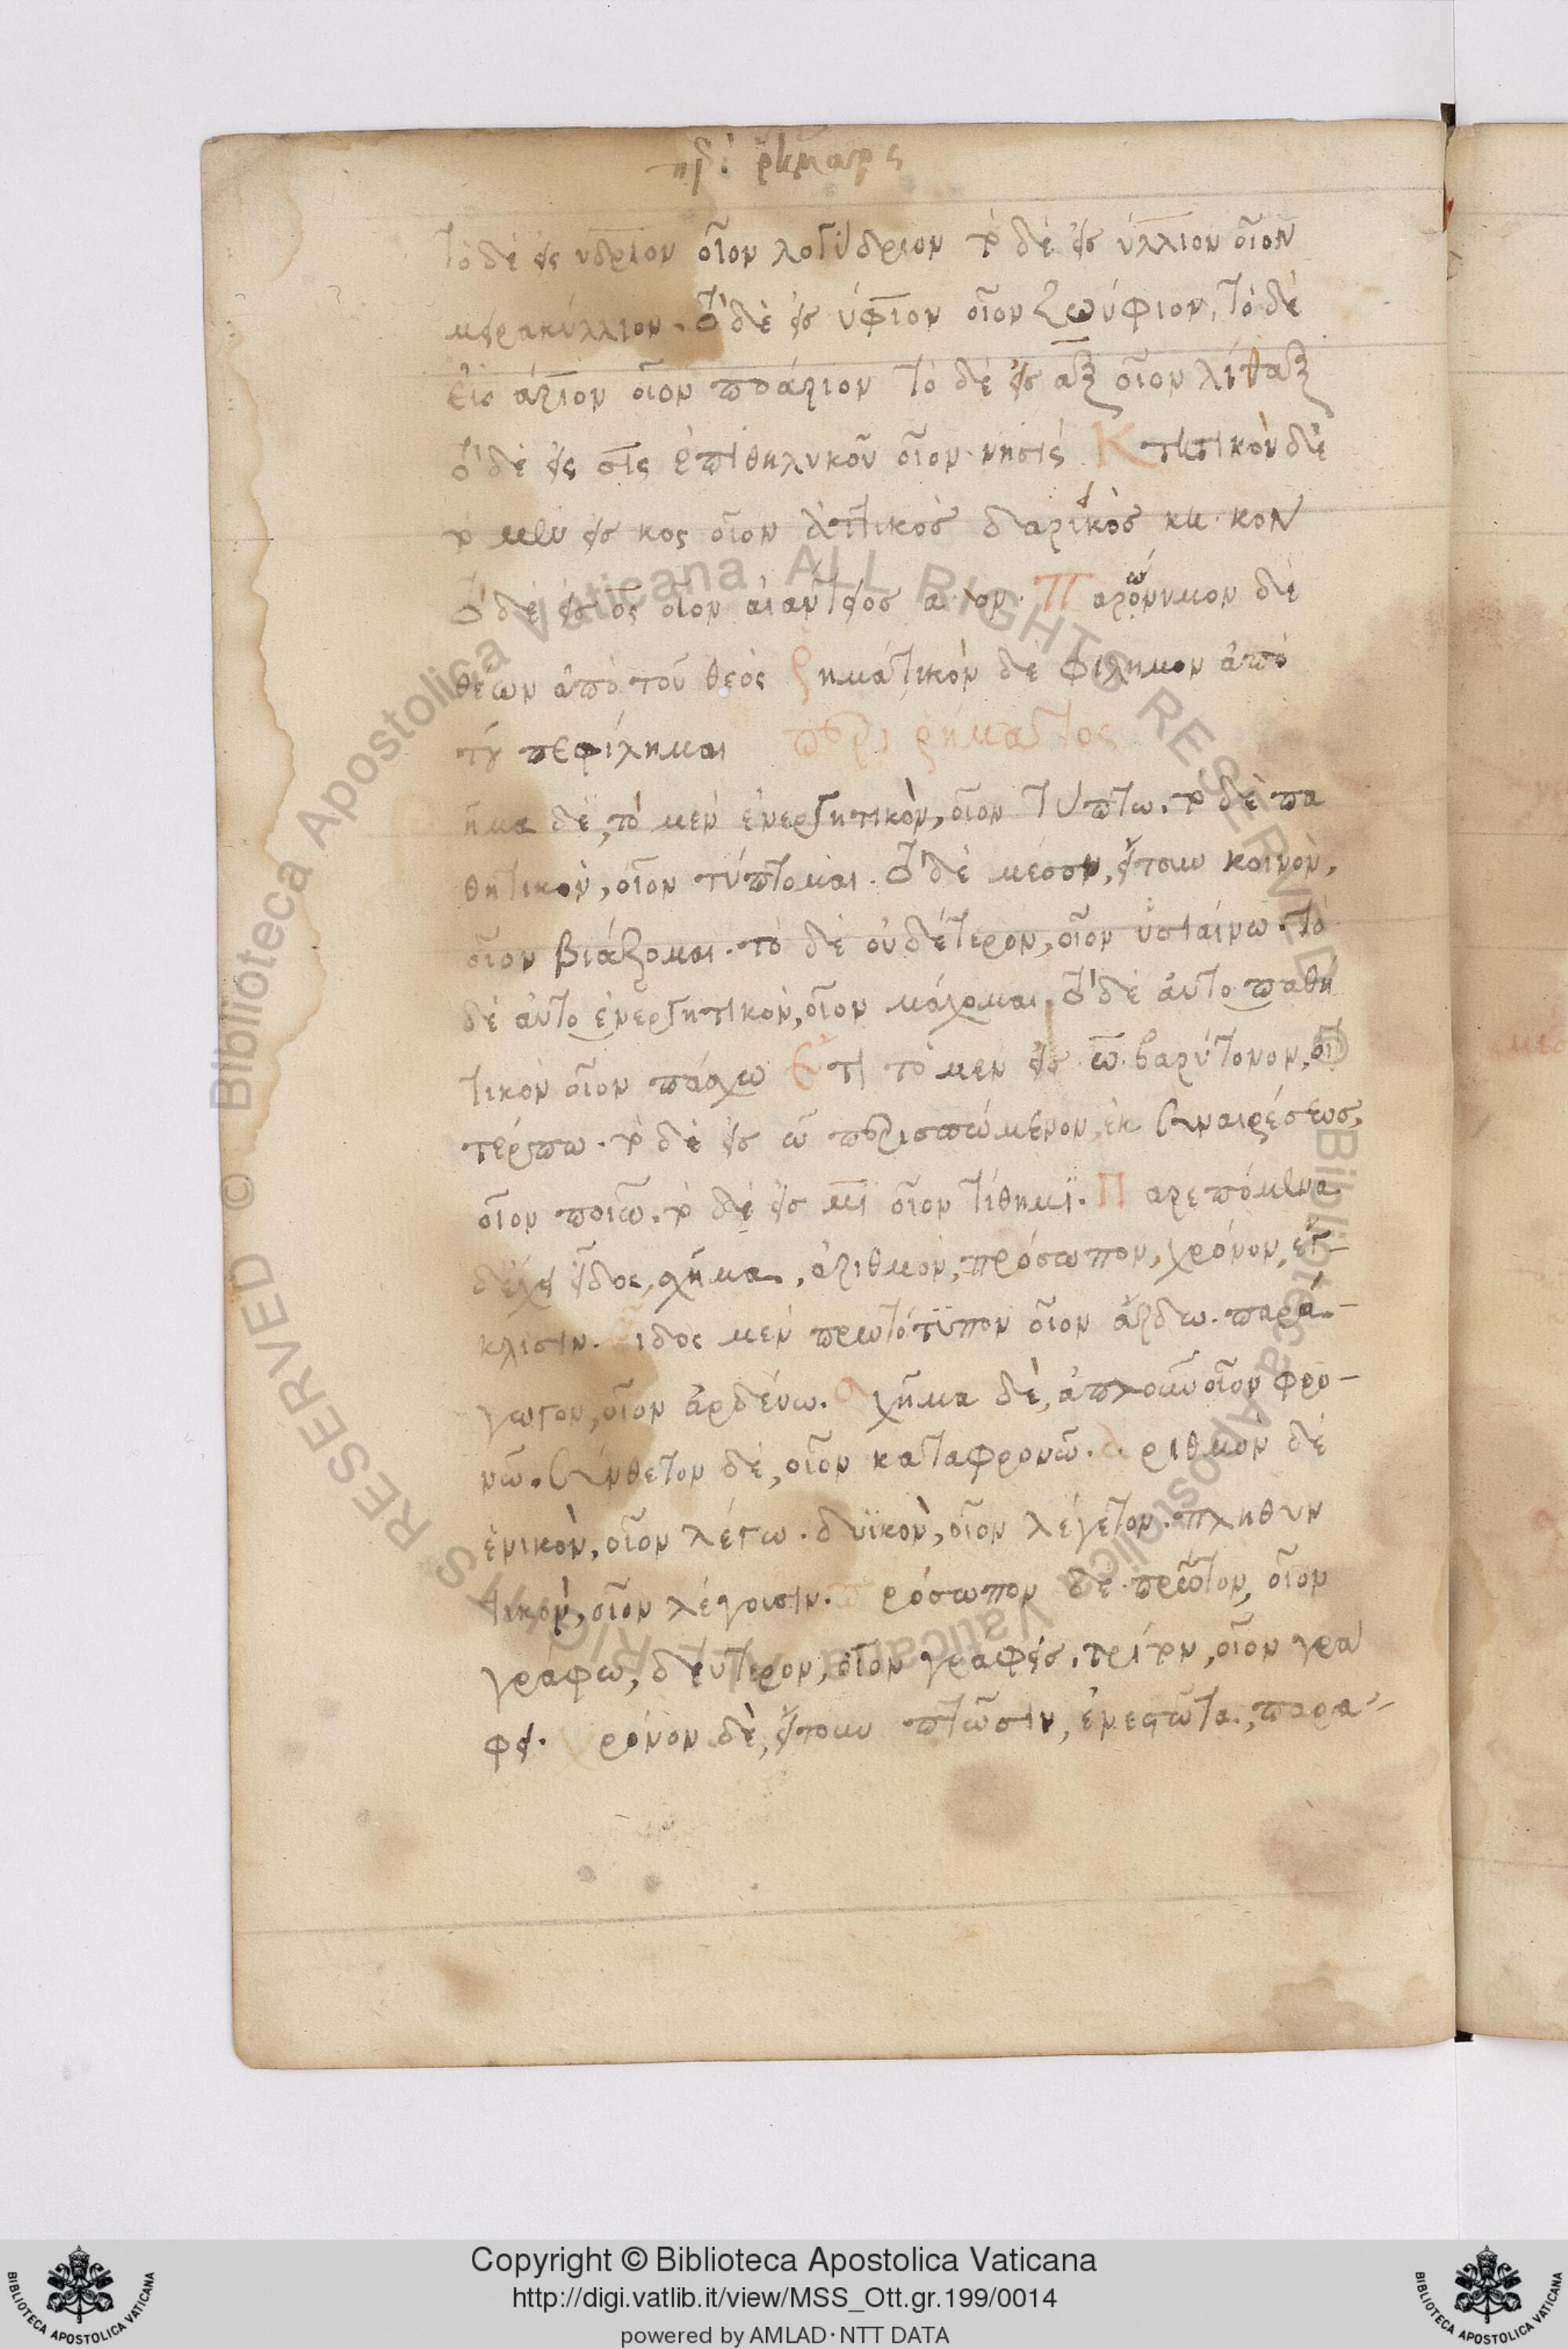 τὸ δὲ εἰς ύδριον οἷον λογύδριον τὸ δὲ εἰς ύλλιον οἷον
μειρακύλλιον. τὸ δὲ εἰς ύφιον οἷον ζωύφιον, τὸ δὲ
εἰς άριον οἷον παιάριον τὸ δὲ εἰς αξ οἷον λίθαξ
τὸ δὲ εἰς σις ἐπὶ θηλυκοῦ οἷον νησίς Κτητικὸν δὲ
τὸ μὲν εἰς κος οἷον ἀττικὸς δαρικὸς κη κον
τὸ δὲ εἰς ος οἷον αἰάντειος α ον. Παρώνυμον δὲ
θέων ἀπὸ τοῦ θεός ῥηματικὸν δὲ φιλήμων ἀπὸ
τοῦ πεφίλημαι περὶ ῥήματος
ῆμα δὲ, τὸ μὲν ἐνεργητικὸν, οἷον τύπτω. τὸ δὲ πα
θητικὸν, οἷον τύπτομαι. τὸ δὲ μέσον, ἤτοι κοινὸν,
οἷον βιάζομαι. τὸ δὲ οὐδέτερον, οἷον ὑσταίνω. τὸ
δὲ αὐτοενεργητικὸν, οἷον μάχομαι, τὸ δὲ αὐτοπαθη
τικὸν οἷον πάσχω Ἔτι τὸ μὲν εἰς ω βαρύτονον, οἷ
τέρπω. τὸ δὲ εἰς ῶ περισπώμενον, ἐκ συναιρέσεως,
οἷον ποιῶ. τὸ δὲ εἰς μι οἷον τίθημι. Παρεπόμενα
δέχει εἶδος, σχῆμα, ἀριθμὸν, πρόσωπον, χρόνον, ἔγ-
κλισιν. ιδος μὲν πρωτότυπον οἷον ἄρδω. παρα-
γωγον, οἷον ἀρδεύω. σχῆμα δὲ, ἁπλοῦν οἷον φρο-
νῶ. σύνθετον δὲ, οἷον καταφρονῶ. ἀριθμὸν δὲ
ἑνικὸν, οἷον λέγω. δυϊκὸν, οἷον λέγετον. πληθυν
τικὸν, οἷον λέγουσιν. πρόσωπον δὲ πρῶτον, οἷον
γράφω, δεύτερον, οἷον γράφεις, τρίτον, οἷον γρά
φει. χρόνον δὲ, ἤτοι πτῶσιν, ἐνεστῶτα, παρα-
Copyright © Biblioteca Apostolica Vaticana
http://digi.vatlib.it/view/MSS_Ott.gr.199/0014
powered by AMLAD·NTT DATA